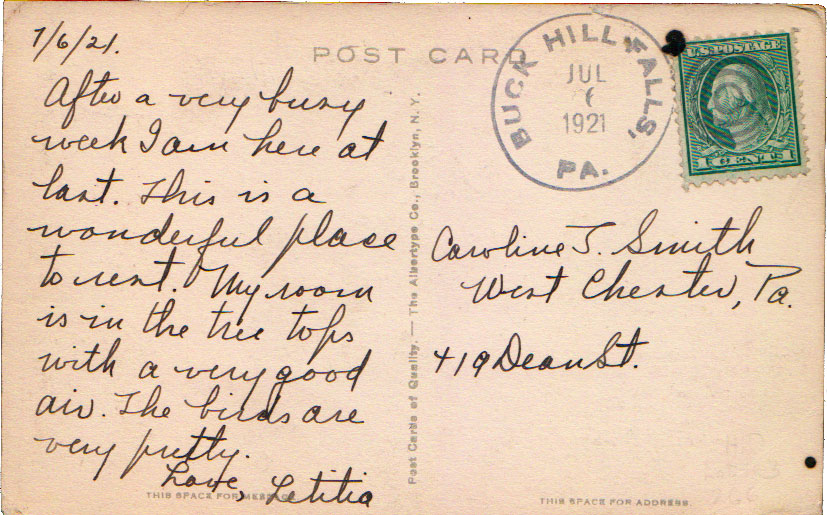 7/6/21.
POST CARD
After a very busy
week I am here at
last. This is a
wonderful place
to rest. My room
is in the tree tops
with a very good
air. The birds are
very pretty.
Love, Letitia
THIS SPACE FOR MESSAGE
Post Cards of Quality. — The Albertype Co., Brooklyn, N. Y.
BUCK HILL FALLS,
JUL
6
1921
PA.
U.S. POSTAGE
1 CENT 1
Caroline T. Smith
West Chester, Pa.
419 Dean St.
THIS SPACE FOR ADDRESS.